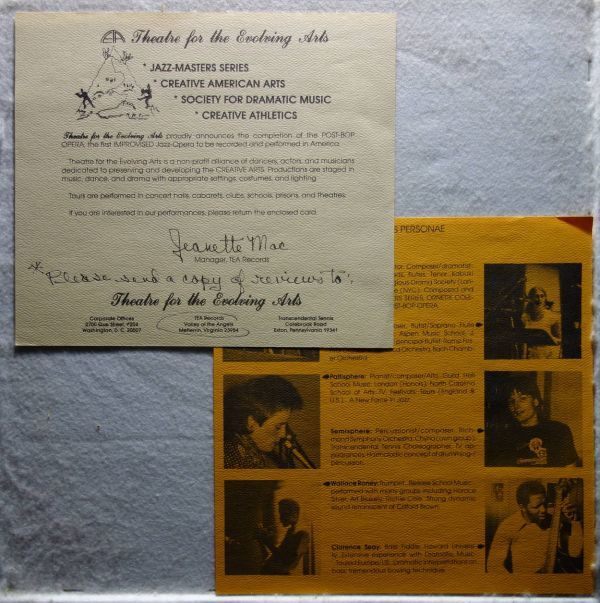 Theatre for the Evolving Arts
* JAZZ-MASTERS SERIES
* CREATIVE AMERICAN ARTS
* SOCIETY FOR DRAMATIC MUSIC
* CREATIVE ATHLETICS
Theatre for the Evolving Arts proudly announces the completion of the POST-BOP
OPERA, the first IMPROVISED Jazz-Opera to be recorded and performed in America.
Theatre for the Evolving Arts is a non-profit alliance of dancers, actors, and musicians
dedicated to preserving and developing the CREATIVE ARTS. Productions are staged in
music, dance, and drama with appropriate settings, costumes, and lighting.
Tours are performed in concert halls, cabarets, clubs, schools, prisons, and Theatres.
If you are interested in our performances, please return the enclosed card.
Jeanette Mac
Manager, TEA Records
* Please send a copy of reviews to:
Theatre for the Evolving Arts
Corporate Offices
2700 Que Street, #204
Washington, D. C. 20007
TEA Records
Valley of the Angels
Meherrin, Virginia 23954
Transcendental Tennis
Colebrook Road
Exton, Pennsylvania 19341
PERSONAE
Composer/dramatist-
Flutes, Tenor, Kabuki
Drama) Society (Lon-
(N.Y.C.). Composed and
SERIES, ORNETE COLE-
POST-BOP OPERA.
Flutist/Soprano Flute
Aspen Music School, J
principal flutist Rome Fes-
Orchestra, Bach Cham-
ber Orchestra
Pattisphere: Pianist/composer/Arts, Guild Hall
School Music, London (Honors); North Carolina
School of Arts, TV, Festivals, Tours (England &
U.S.)... A New Force in Jazz.
Semisphere: Percussionist/composer, Rich-
mond Symphony Orchestra, Chyna (own group),
Transcendental Tennis Choreographer, TV ap-
pearances, Harmolodic concept of drumming +
percussion.
Wallace Roney: Trumpet, Berklee School Music,
performed with many groups including Horace
Silver, Art Blakey, Richie Cole. Strong dynamic
sound reminiscent of Clifford Brown.
Clarence Seay: Bass Fiddle, Howard Universi-
ty. Extensive experience with Dramatic Music.
Toured Europe/U.S. Dramatic interpretations on
bass; tremendous bowing technique.